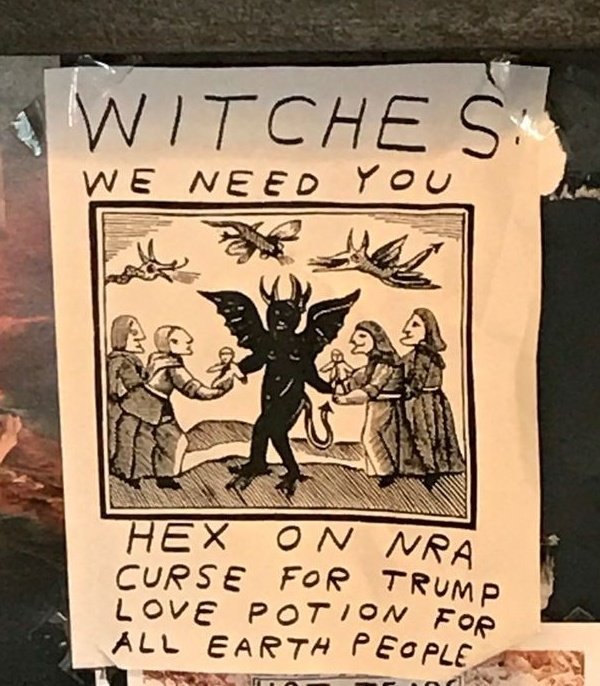 WITCHES:
WE NEED YOU
HEX ON NRA
CURSE FOR TRUMP
LOVE POTION FOR
ALL EARTH PEOPLE